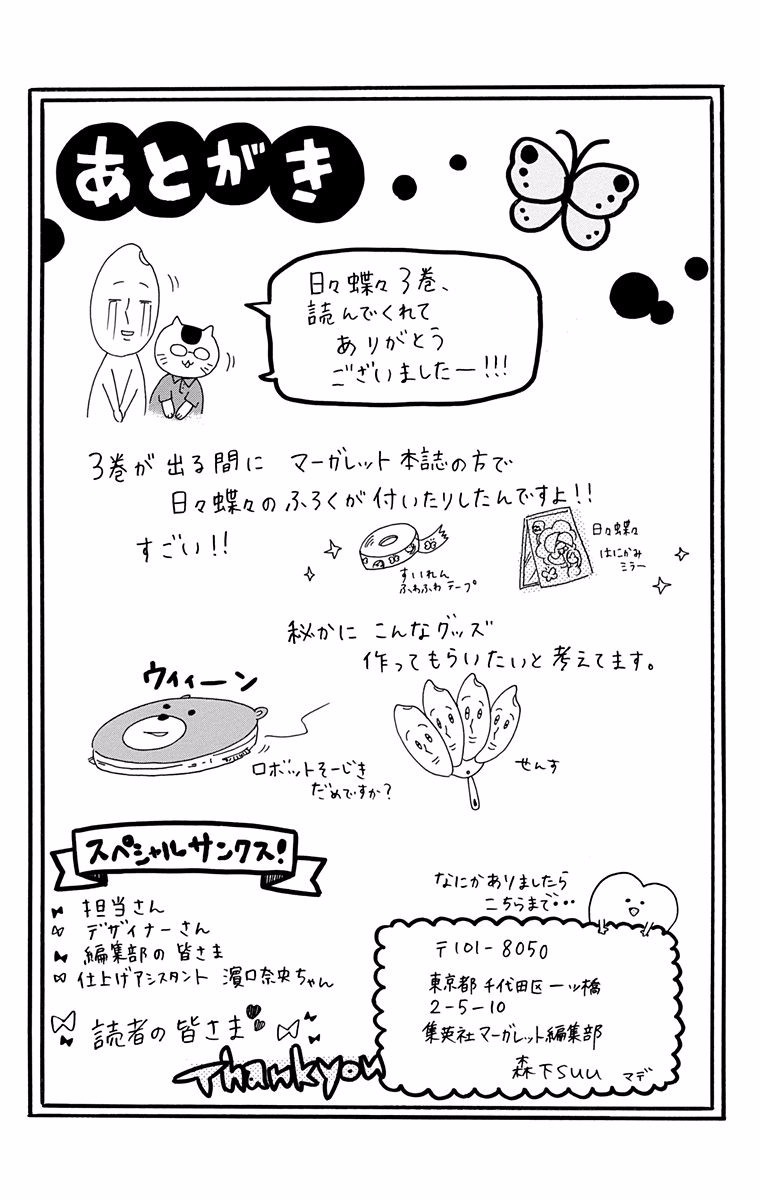 あとがき
日々蝶々3巻、
読んでくれて
ありがとう
ございましたー!!!
3巻が出る間に マーガレット本誌の方で
日々蝶々のふろくが付いたりしたんですよ!!
すごい!!
すいれん
ふわふわテープ
日々蝶々
はにかみ
ミラー
秘かに こんなグッズ
作ってもらいたいと考えてます。
ウィィーン
ロボットそーじき
だめですか?
せんす
スペシャルサンクス!
担当さん
デザイナーさん
編集部の皆さま
仕上げアシスタント 濱口奈央ちゃん
読者の皆さま
Thankyou
なにかありましたら
こちらまで…
〒101-8050
東京都千代田区一ッ橋
2-5-10
集英社マーガレット編集部
森下suu マデ